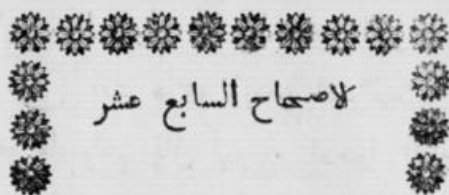 لاصحاح السابع عشر